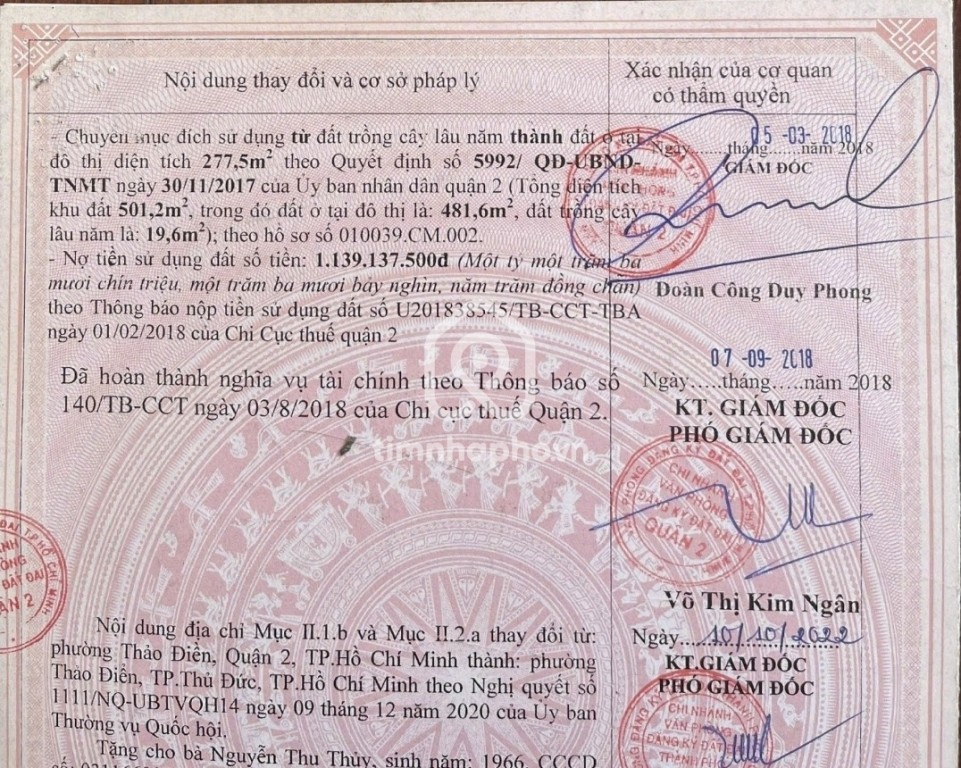 Nội dung thay đổi và cơ sở pháp lý
Xác nhận của cơ quan
có thẩm quyền
- Chuyển mục đích sử dụng từ đất trồng cây lâu năm thành đất ở tại
đô thị diện tích 277,5m² theo Quyết định số 5992/ QĐ-UBND-
TNMT ngày 30/11/2017 của Ủy ban nhân dân quận 2 (Tổng diện tích
khu đất 501,2m², trong đó đất ở tại đô thị là: 481,6m², đất trồng cây
lâu năm là: 19,6m²); theo hồ sơ số 010039.CM.002.
- Nợ tiền sử dụng đất số tiền: 1.139.137.500đ (Một tỷ một trăm ba
mươi chín triệu, một trăm ba mươi bảy nghìn, năm trăm đồng chẵn)
theo Thông báo nộp tiền sử dụng đất số U201838545/TB-CCT-TBA
ngày 01/02/2018 của Chi Cục thuế quận 2
05 -03- 2018
Ngày......tháng......năm 2018
GIÁM ĐỐC
QUẬN 2
Đoàn Công Duy Phong
Đã hoàn thành nghĩa vụ tài chính theo Thông báo số
140/TB-CCT ngày 03/8/2018 của Chi cục thuế Quận 2.
07 -09- 2018
Ngày.....tháng.....năm 2018
KT. GIÁM ĐỐC
PHÓ GIÁM ĐỐC
CHI NHÁNH
VĂN PHÒNG
ĐĂNG KÝ ĐẤT ĐAI
QUẬN 2
Võ Thị Kim Ngân
timnhaphovn
ĐẤT ĐAI TP.HỒ CHÍ MINH
Nội dung địa chỉ Mục II.1.b và Mục II.2.a thay đổi từ:
phường Thảo Điền, Quận 2, TP.Hồ Chí Minh thành: phường
Thảo Điền, TP.Thủ Đức, TP.Hồ Chí Minh theo Nghị quyết số
1111/NQ-UBTVQH14 ngày 09 tháng 12 năm 2020 của Ủy ban
Thường vụ Quốc hội.
Tặng cho bà Nguyễn Thu Thủy, sinh năm: 1966, CCCD
Ngày....10/10/2022
KT.GIÁM ĐỐC
PHÓ GIÁM ĐỐC
CHI NHÁNH
VĂN PHÒNG
ĐĂNG KÝ ĐẤT ĐAI